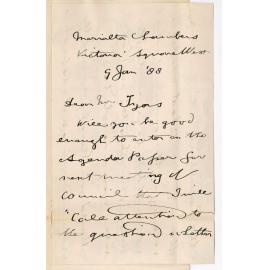 Marialta Chambers
Victoria Square West
9 Jan '88
Dear Mr Tyas
Will you be good
enough to enter on the
Agenda Paper for
next meeting of
Council that I will
"Call attention to
the question whether